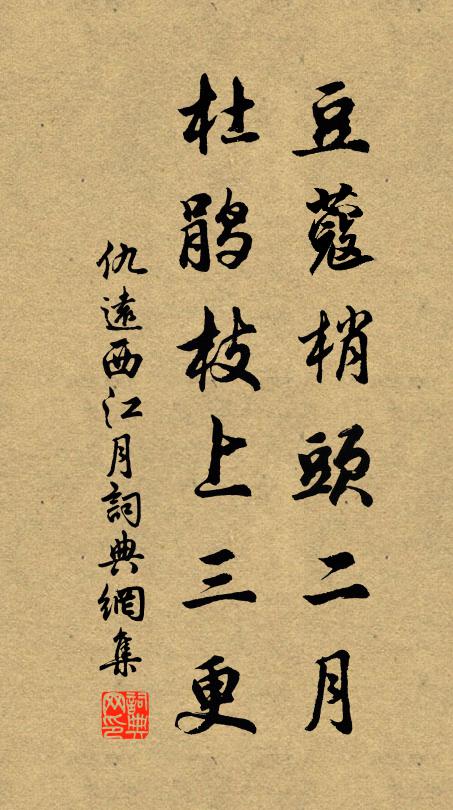 豆蔻梢頭二月
杜鵑枝上三更
仇遠西江月詞典網集
詞典网印